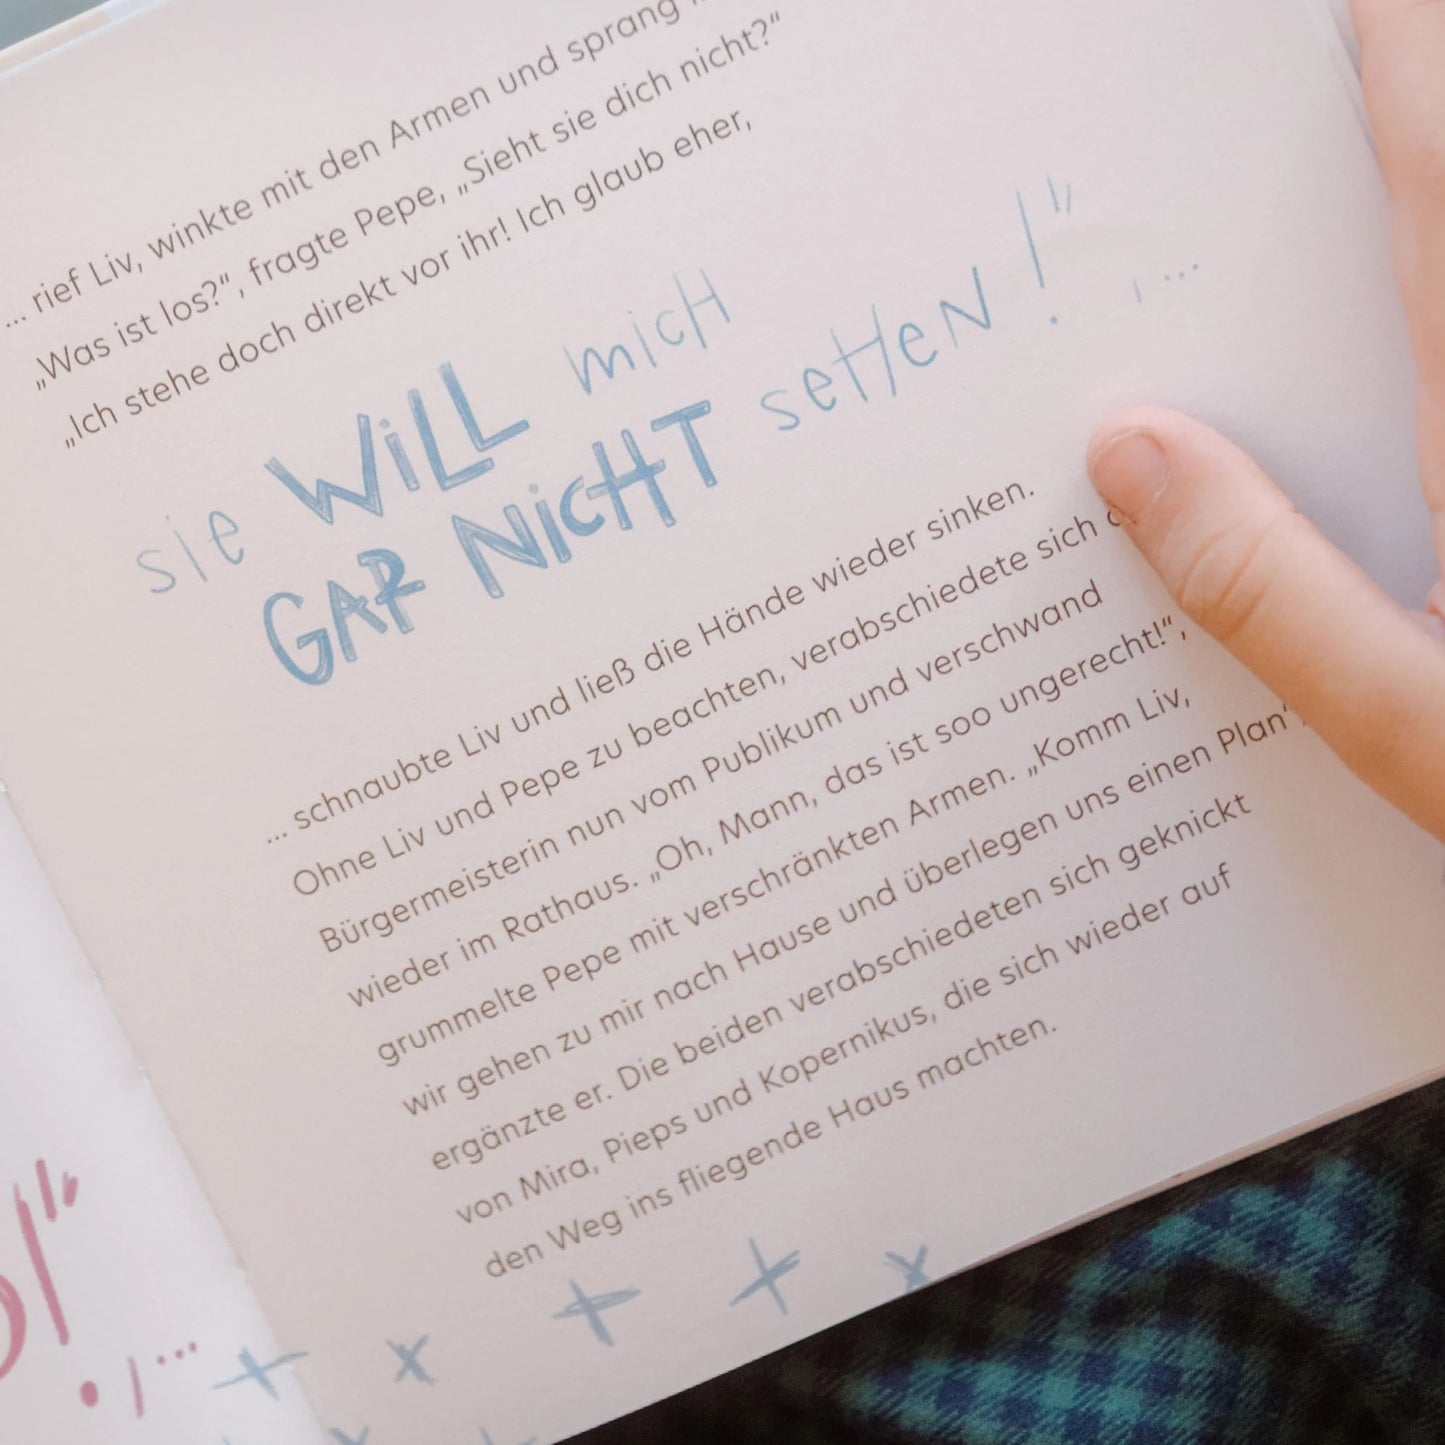 ... rief Liv, winkte mit den Armen und sprang
„Was ist los?“, fragte Pepe, „Sieht sie dich nicht?“
„Ich stehe doch direkt vor ihr! Ich glaub eher,
sie WiLL micH
GAR NicHT seHeN!“, ...
... schnaubte Liv und ließ die Hände wieder sinken.
Ohne Liv und Pepe zu beachten, verabschiedete sich
Bürgermeisterin nun vom Publikum und verschwand
wieder im Rathaus. „Oh, Mann, das ist soo ungerecht!“,
grummelte Pepe mit verschränkten Armen. „Komm Liv,
wir gehen zu mir nach Hause und überlegen uns einen Plan“,
ergänzte er. Die beiden verabschiedeten sich geknickt
von Mira, Pieps und Kopernikus, die sich wieder auf
den Weg ins fliegende Haus machten.
!“, ...